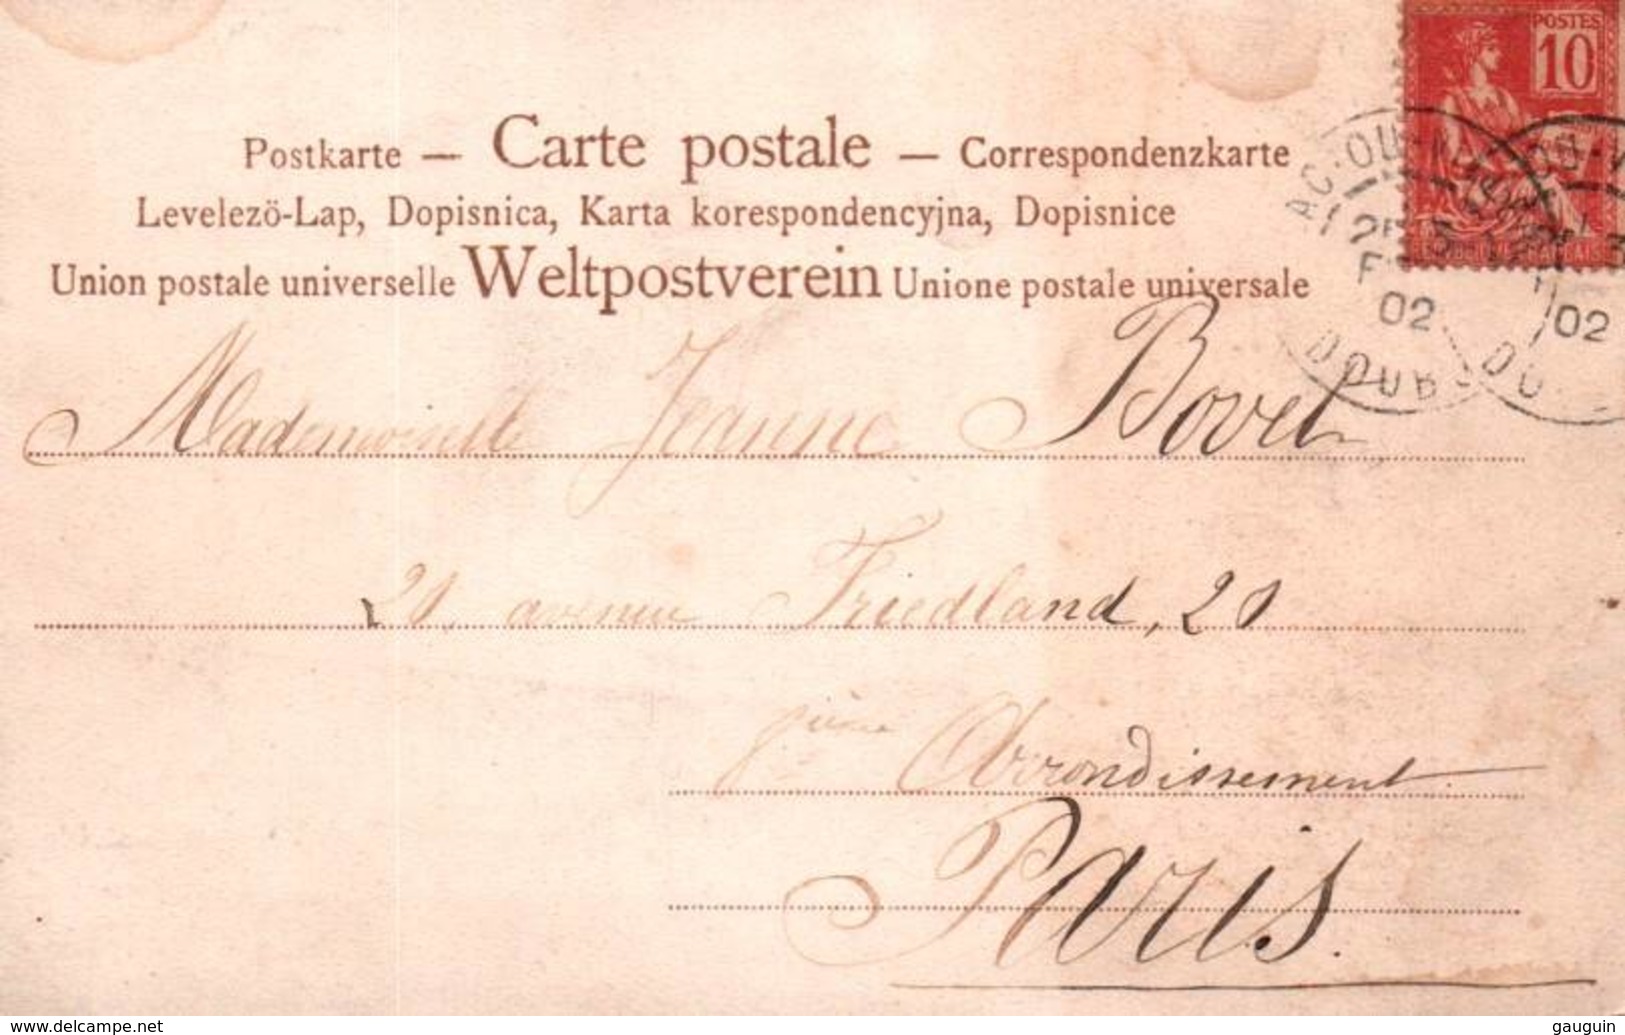 POSTES
10
Postkarte — Carte postale — Correspondenzkarte
Levelezö-Lap, Dopisnica, Karta korespondencyjna, Dopisnice
Union postale universelle Weltpostverein Unione postale universale
02
02
DOUBS
Mademoiselle Jeanne Bovet
avenue Friedland,
Arrondissement
Paris.
www.delcampe.net
gauguin